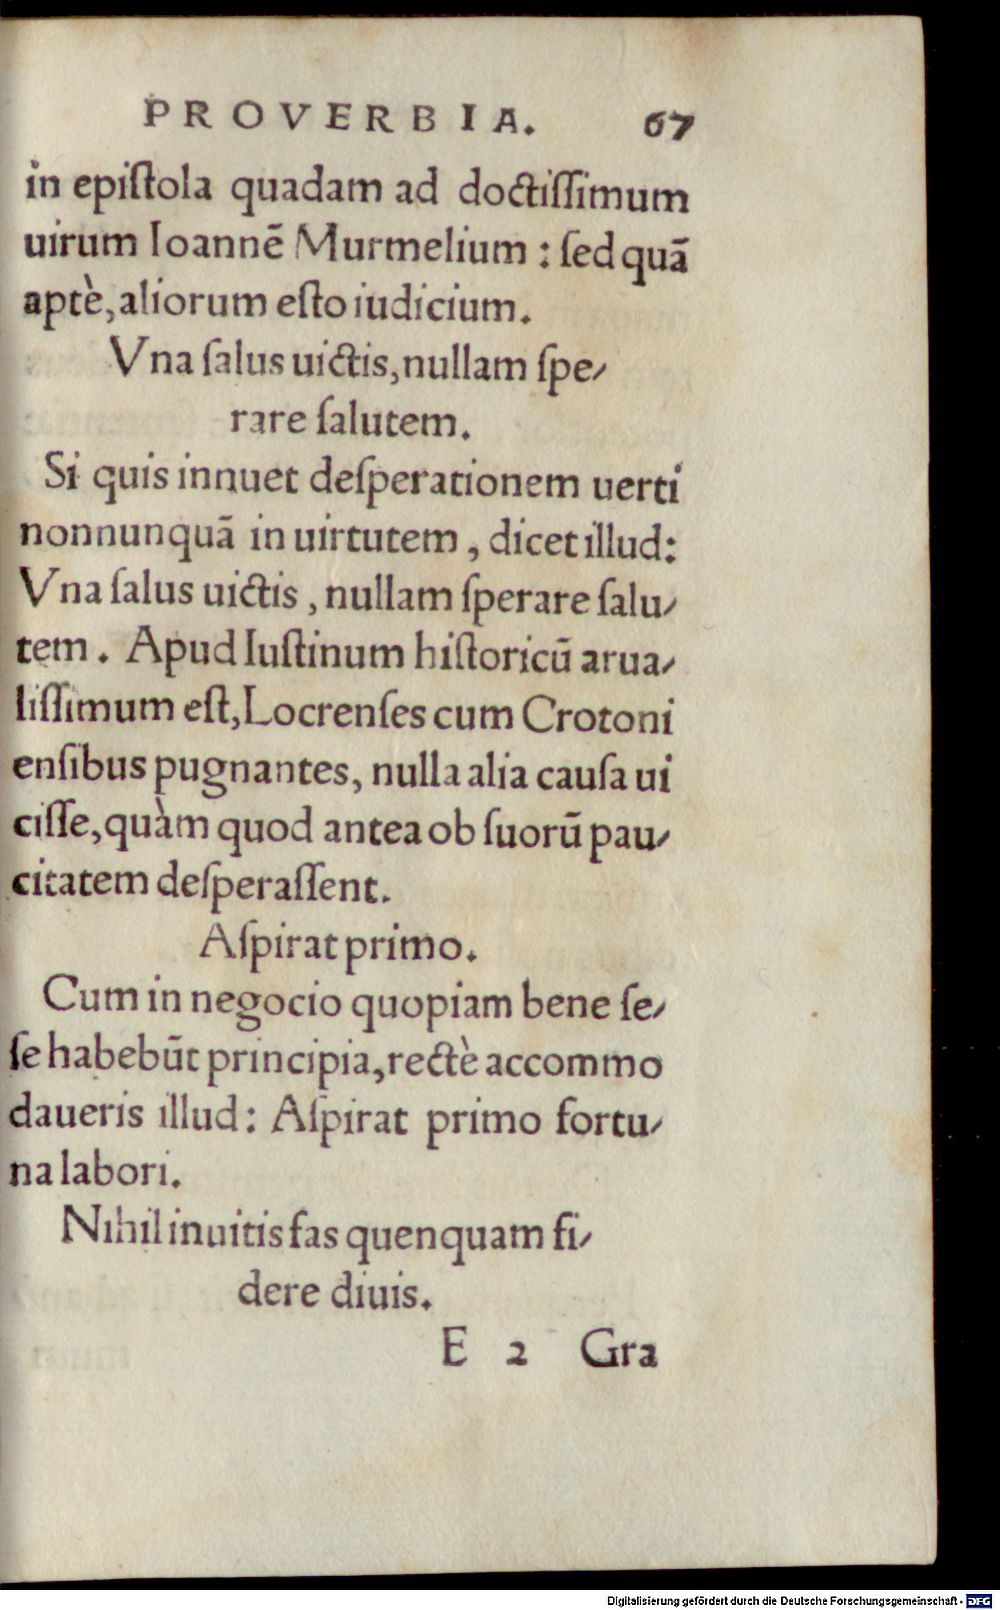 PROVERBIA. 67
in epiſtola quadam ad doctiſſimum
uirum Ioannē Murmelium : ſed quā
aptè, aliorum eſto iudicium.
Vna ſalus uictis, nullam ſpe⸗
rare ſalutem.
Si quis innuet deſperationem uerti
nonnunquā in uirtutem, dicet illud:
Vna ſalus uictis, nullam ſperare ſalu⸗
tem. Apud Iuſtinum hiſtoricū arua⸗
liſſimum eſt, Locrenſes cum Crotoni
enſibus pugnantes, nulla alia cauſa ui
ciſſe, quàm quod antea ob ſuorū pau⸗
citatem deſperaſſent.
Aſpirat primo.
Cum in negocio quopiam bene ſe⸗
ſe habebūt principia, rectè accommo
daueris illud: Aſpirat primo fortu⸗
na labori.
Nihil inuitis fas quenquam fi⸗
dere diuis.
E 2 Gra
Digitalisierung gefördert durch die Deutsche Forschungsgemeinschaft - DFG